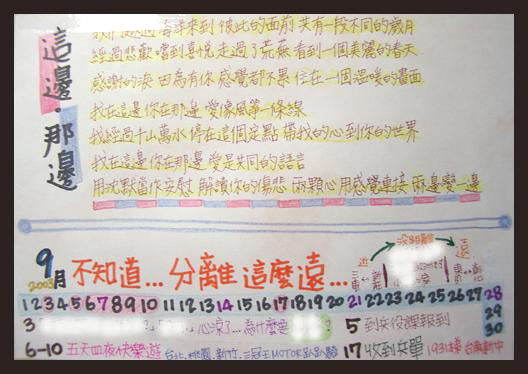 這邊·那邊
我們
海洋來到 彼此的面前 共有一段不同的歲月
經過悲歡 嚐到喜悅 走過了荒蕪 看到一個美麗的春天
感謝的淚 因為有你 感覺都不累 住在一個溫暖的畫面
我在這邊 你在那邊 愛像風箏一條線
我經過千山萬水 停在這個定點 帶我的心到你的世界
我在這邊 你在那邊 愛是共同的語言
用沈默當作安慰 解讀你的傷悲 兩顆心用感覺連接 兩邊變一邊
9月
2003
不知道... 分離這麼遠...
近
遠
1 2 3 4 5 6 7 8 9 10 11 12 13 14 15 16 17 18 19 20 21 22 23 24 25 26 27 28
29
30
3
心涼了... 為什麼要
5 到兵役課報到
6-10 五天四夜快樂遊 台北.桃園.新竹.三冠王MOTOR趴趴騎
17 收到兵單 1931梯 台南新中